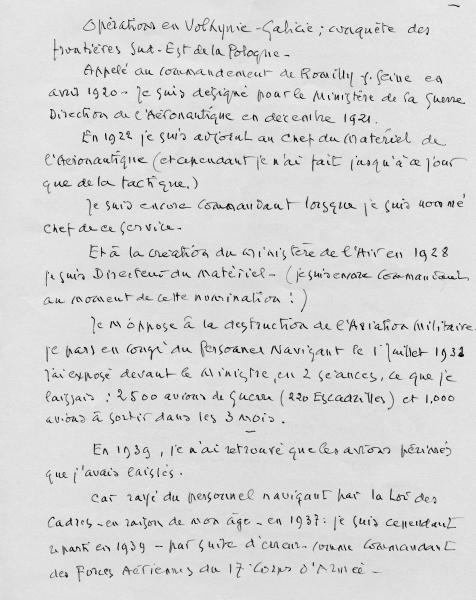 Opérations en Volhynie-Galicie ; conquête des
frontières Sud-Est de la Pologne -
Appelé au commandement de Romilly s/ Seine en
avril 1920 - Je suis désigné pour le Ministère de la Guerre
Direction de l'Aéronautique en décembre 1921.
En 1922 je suis adjoint au Chef du Matériel de
l'Aéronautique (et cependant je n'ai fait jusqu'à ce jour
que de la tactique.)
Je suis encore Commandant lorsque je suis nommé
Chef de ce service -
Et à la création du Ministère de l'Air en 1928
je suis Directeur du Matériel - (je suis encore Commandant
au moment de cette nomination !)
Je m'oppose à la destruction de l'Aviation Militaire -
je pars en congé du Personnel Navigant le 1er Juillet
J'ai exposé devant le Ministre, en 2 séances, ce que je
laissais : 2500 avions de Guerre (220 Escadrilles) et 1.000
avions à sortir dans les 3 mois.
En 1939, je n'ai retrouvé que les avions périmés
que j'avais laissés.
Car rayé du personnel navigant par la Loi des
Cadres - en raison de mon âge - en 1937 : je suis cependant
reparti en 1939 - par suite d'erreur - comme Commandant
des Forces Aériennes du 17e Corps d'Armée -